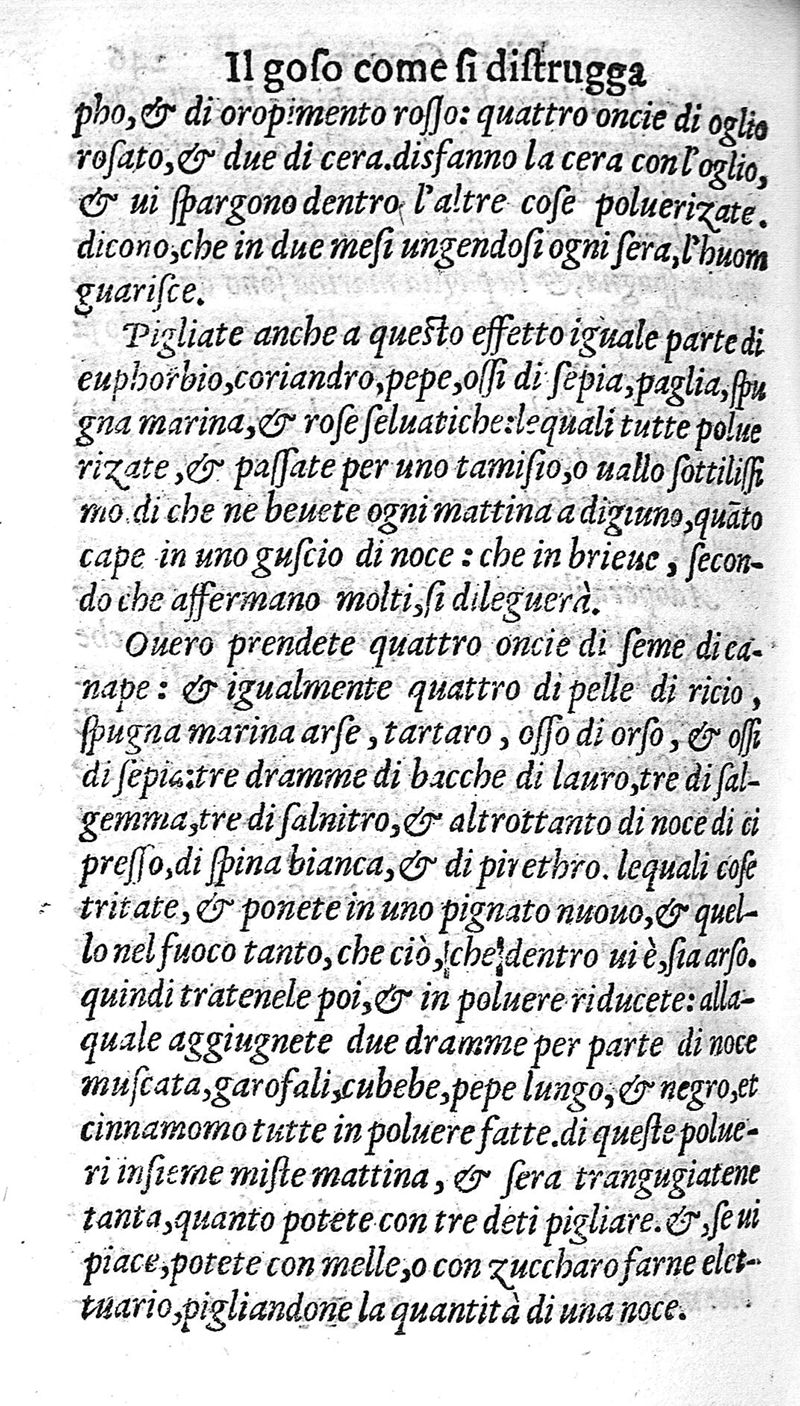 Il goſo come ſi diſtrugga
pho, & di oropimento roſſo: quattro oncie di oglio
roſato, & due di cera. disfanno la cera con l'oglio,
& ui ſpargono dentro l'altre coſe poluerizate.
dicono, che in due meſi ungendoſi ogni ſera, l'huom
guariſce.
Pigliate anche a queſto effetto iguale parte di
euphorbio, coriandro, pepe, oſſi di ſepia, paglia, ſpu
gna marina, & roſe ſeluatiche: lequali tutte polue
rizate, & paſſate per uno tamiſio, o uallo ſottiliſſi
mo. di che ne beuete ogni mattina a digiuno, quãto
cape in uno guſcio di noce: che in brieue, ſecon-
do che affermano molti, ſi dileguerà.
Ouero prendete quattro oncie di ſeme di ca-
nape: & igualmente quattro di pelle di ricio,
ſpugna marina arſe, tartaro, oſſo di orſo, & oſſi
di ſepia: tre dramme di bacche di lauro, tre di ſal-
gemma, tre di ſalnitro, & altrottanto di noce di ci
preſſo, di ſpina bianca, & di pirethro. lequali coſe
tritate, & ponete in uno pignato nuouo, & quel-
lo nel fuoco tanto, che ciò, che dentro ui è, ſia arſo.
quindi tratenele poi, & in poluere riducete: alla-
quale aggiugnete due dramme per parte di noce
muſcata, garofali, cubebe, pepe lungo, & negro, et
cinnamomo tutte in poluere fatte. di queſte polue-
ri inſieme miſte mattina, & ſera trangugiatene
tanta, quanto potete con tre deti pigliare. &, ſe ui
piace, potete con melle, o con zuccharo farne elet-
tuario, pigliandone la quantità di una noce.